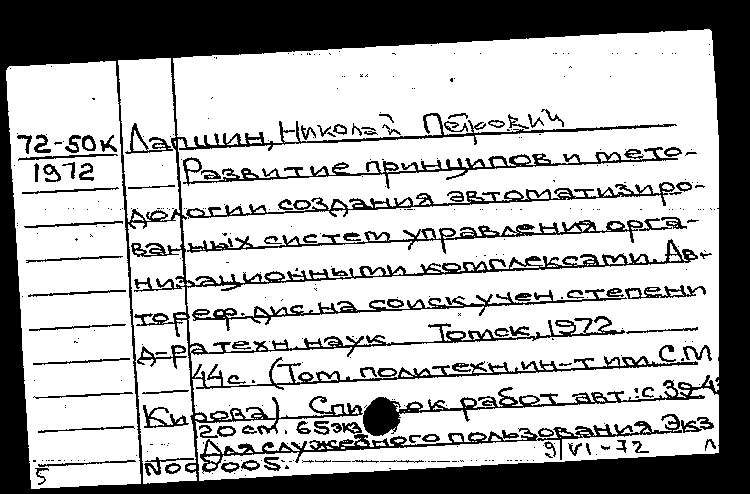 72-50к Лапшин, Николай Петрович
1972 Развитие принципов и мето-
дологии создания автоматизиро-
ванных систем управления орга-
низационными комплексами. Ав-
тореф. дис. на соиск. учен. степени
д-ра техн. наук. Томск, 1972.
44с. (Том. политехн. ин-т им. С.М.
Кирова). Список работ авт.: с. 39-43
20 см. 65 экз
Для служебного пользования. Экз
N000005.
9/VI-72
5